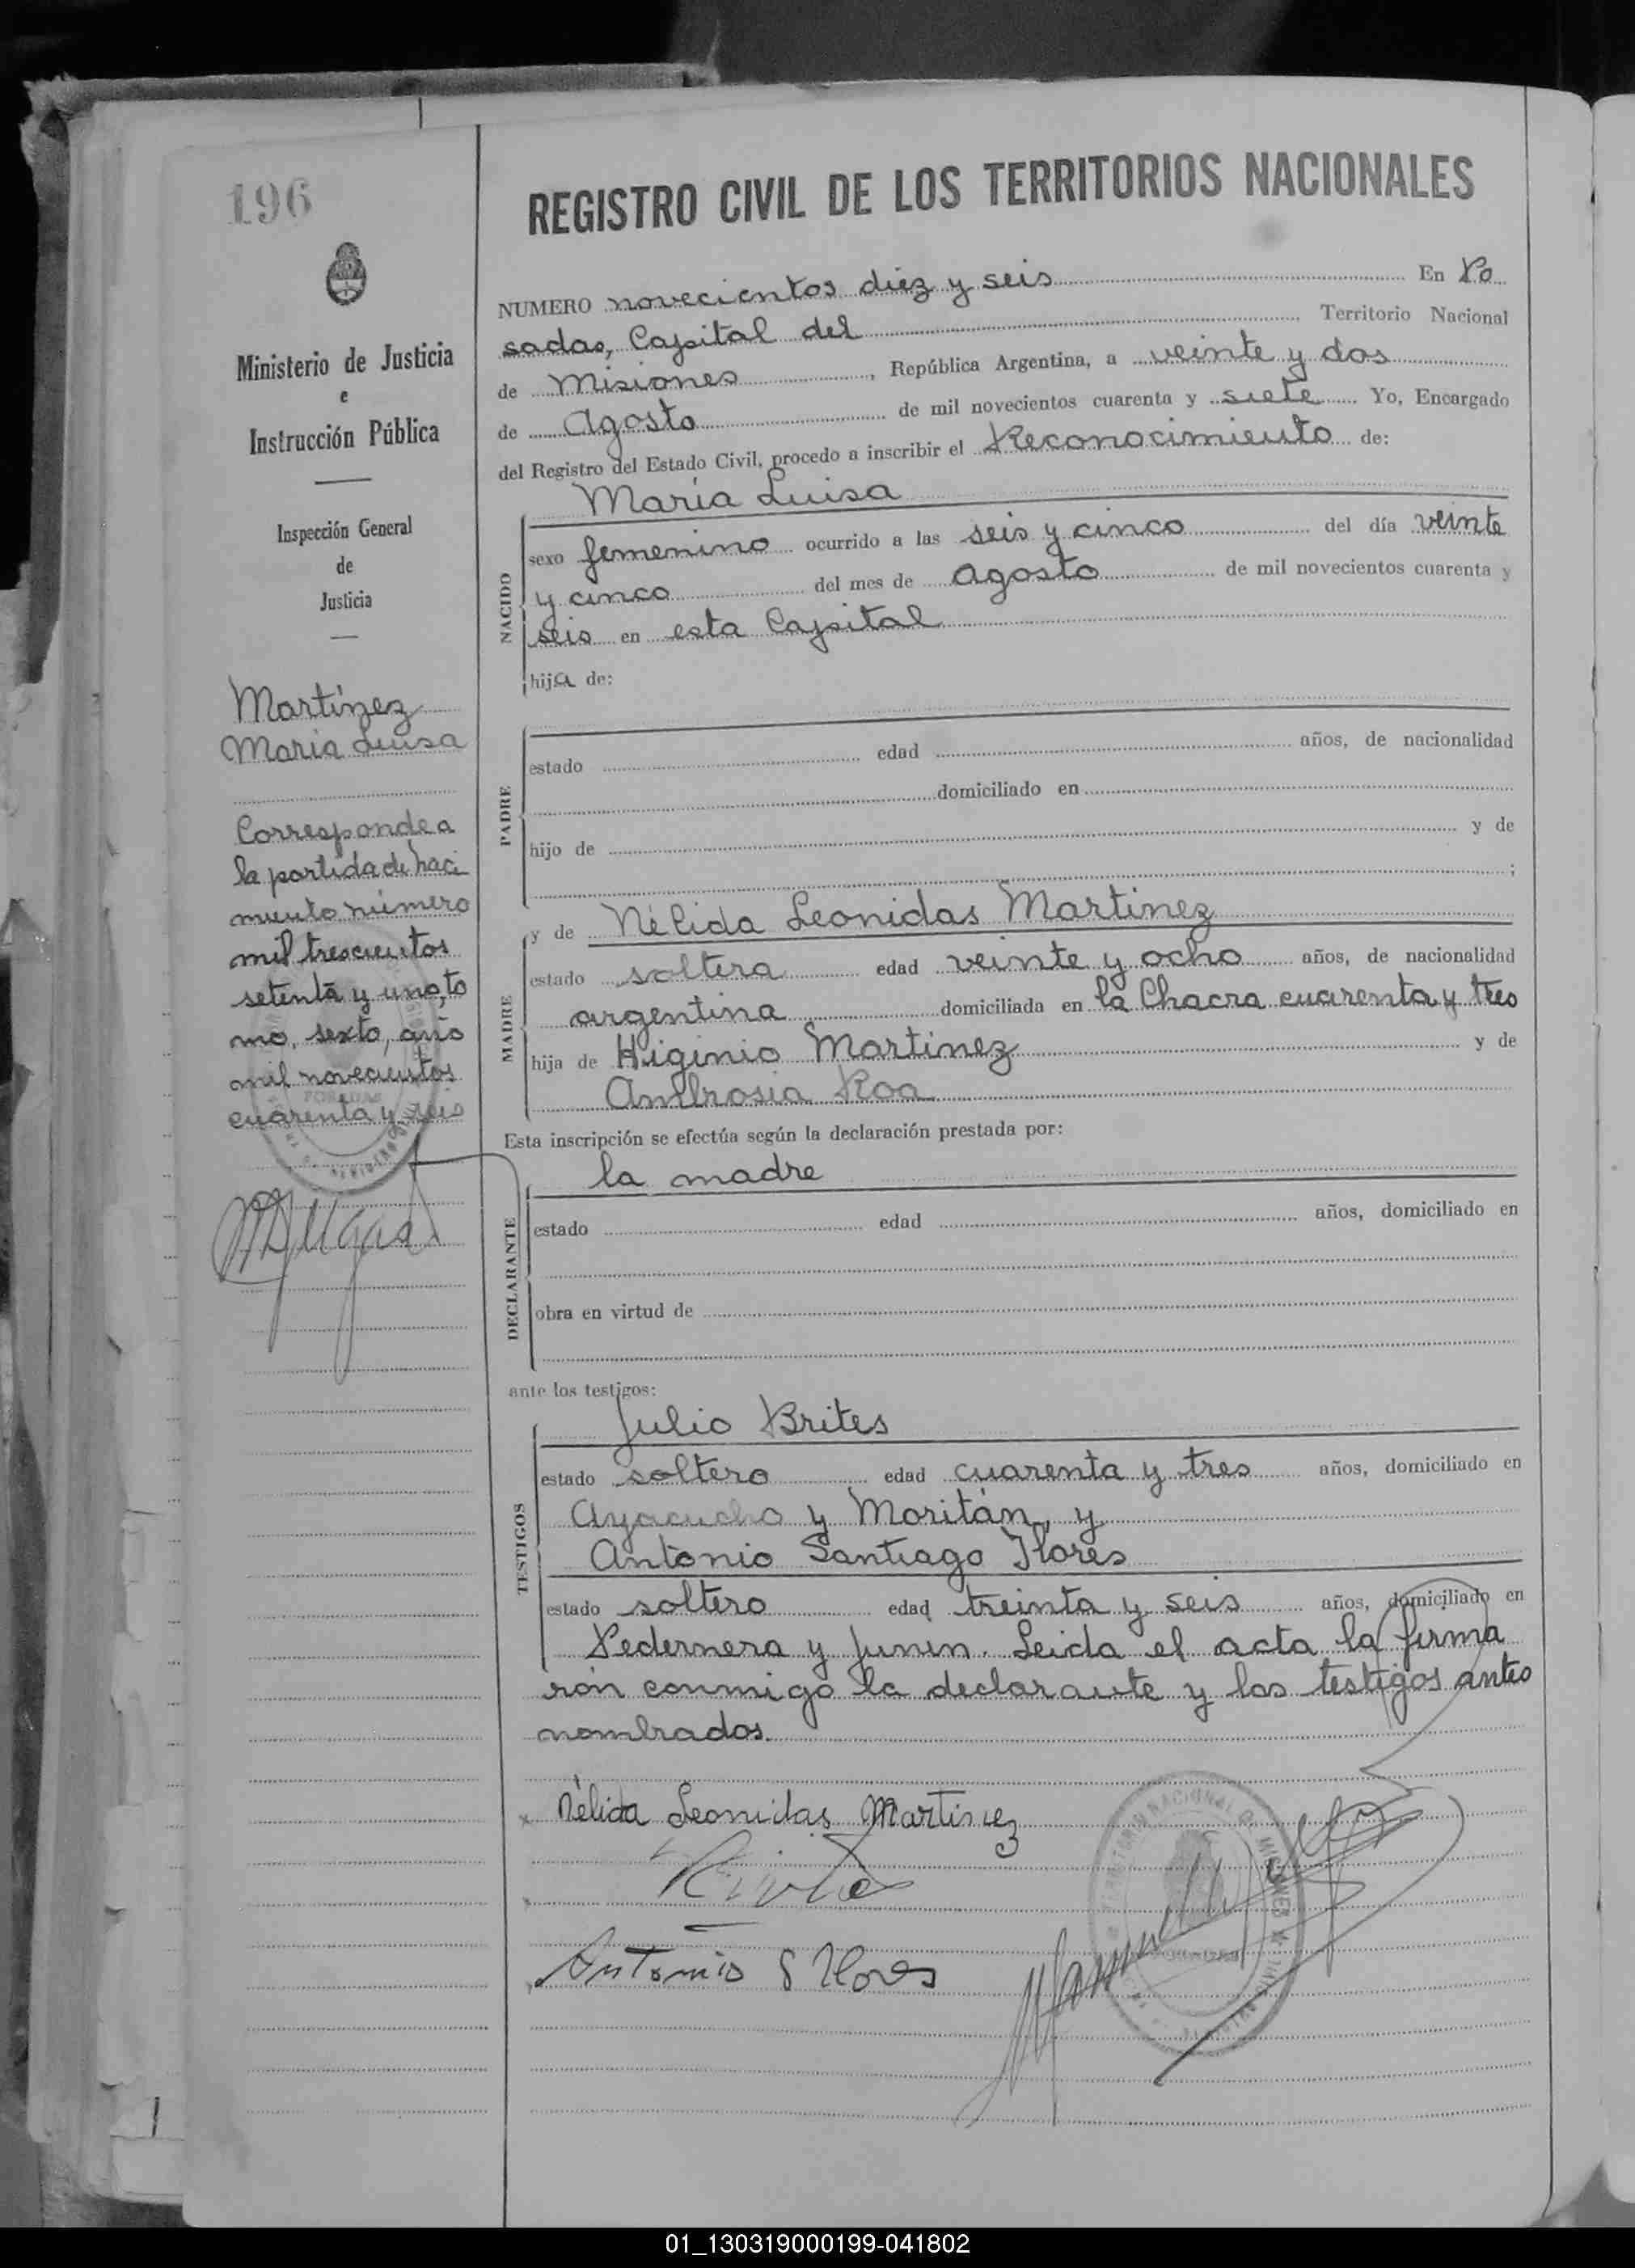 196
Ministerio de Justicia
e
Instrucción Pública
Inspección General
de
Justicia
Martínez
María Luisa
Corresponde a
la partida de naci
miento número
mil trescientos
setenta y uno, to
mo, sexto, año
mil novecientos
cuarenta y seis
REGISTRO CIVIL DE LOS TERRITORIOS NACIONALES
NUMERO novecientos diez y seis En Po
sadas, Capital del Territorio Nacional
de Misiones, República Argentina, a veinte y dos
de Agosto de mil novecientos cuarenta y siete Yo, Encargado
del Registro del Estado Civil, procedo a inscribir el Reconocimiento de:
María Luisa
NACIDO
sexo femenino ocurrido a las seis y cinco del día veinte
y cinco del mes de Agosto de mil novecientos cuarenta y
seis en esta Capital
hija de:
PADRE
estado edad años, de nacionalidad
domiciliado en
hijo de y de
;
MADRE
y de Nélida Leonidas Martinez
estado soltera edad veinte y ocho años, de nacionalidad
argentina domiciliada en la Chacra cuarenta y tres
hija de Higinio Martinez y de
Ambrosia Roa
Esta inscripción se efectúa según la declaración prestada por:
la madre
DECLARANTE
estado edad años, domiciliado en
obra en virtud de
ante los testigos:
Julio Brites
TESTIGOS
estado soltero edad cuarenta y tres años, domiciliado en
Ayacucho y Moritán, y
Antonio Santiago Flores
estado soltero edad treinta y seis años, domiciliado en
Pedernera y Junin. Leida el acta la firma
rón conmigo la declarante y los testigos antes
nombrados.
Nélida Leonidas Martinez
Antonio S Flores
01_130319000199-041802